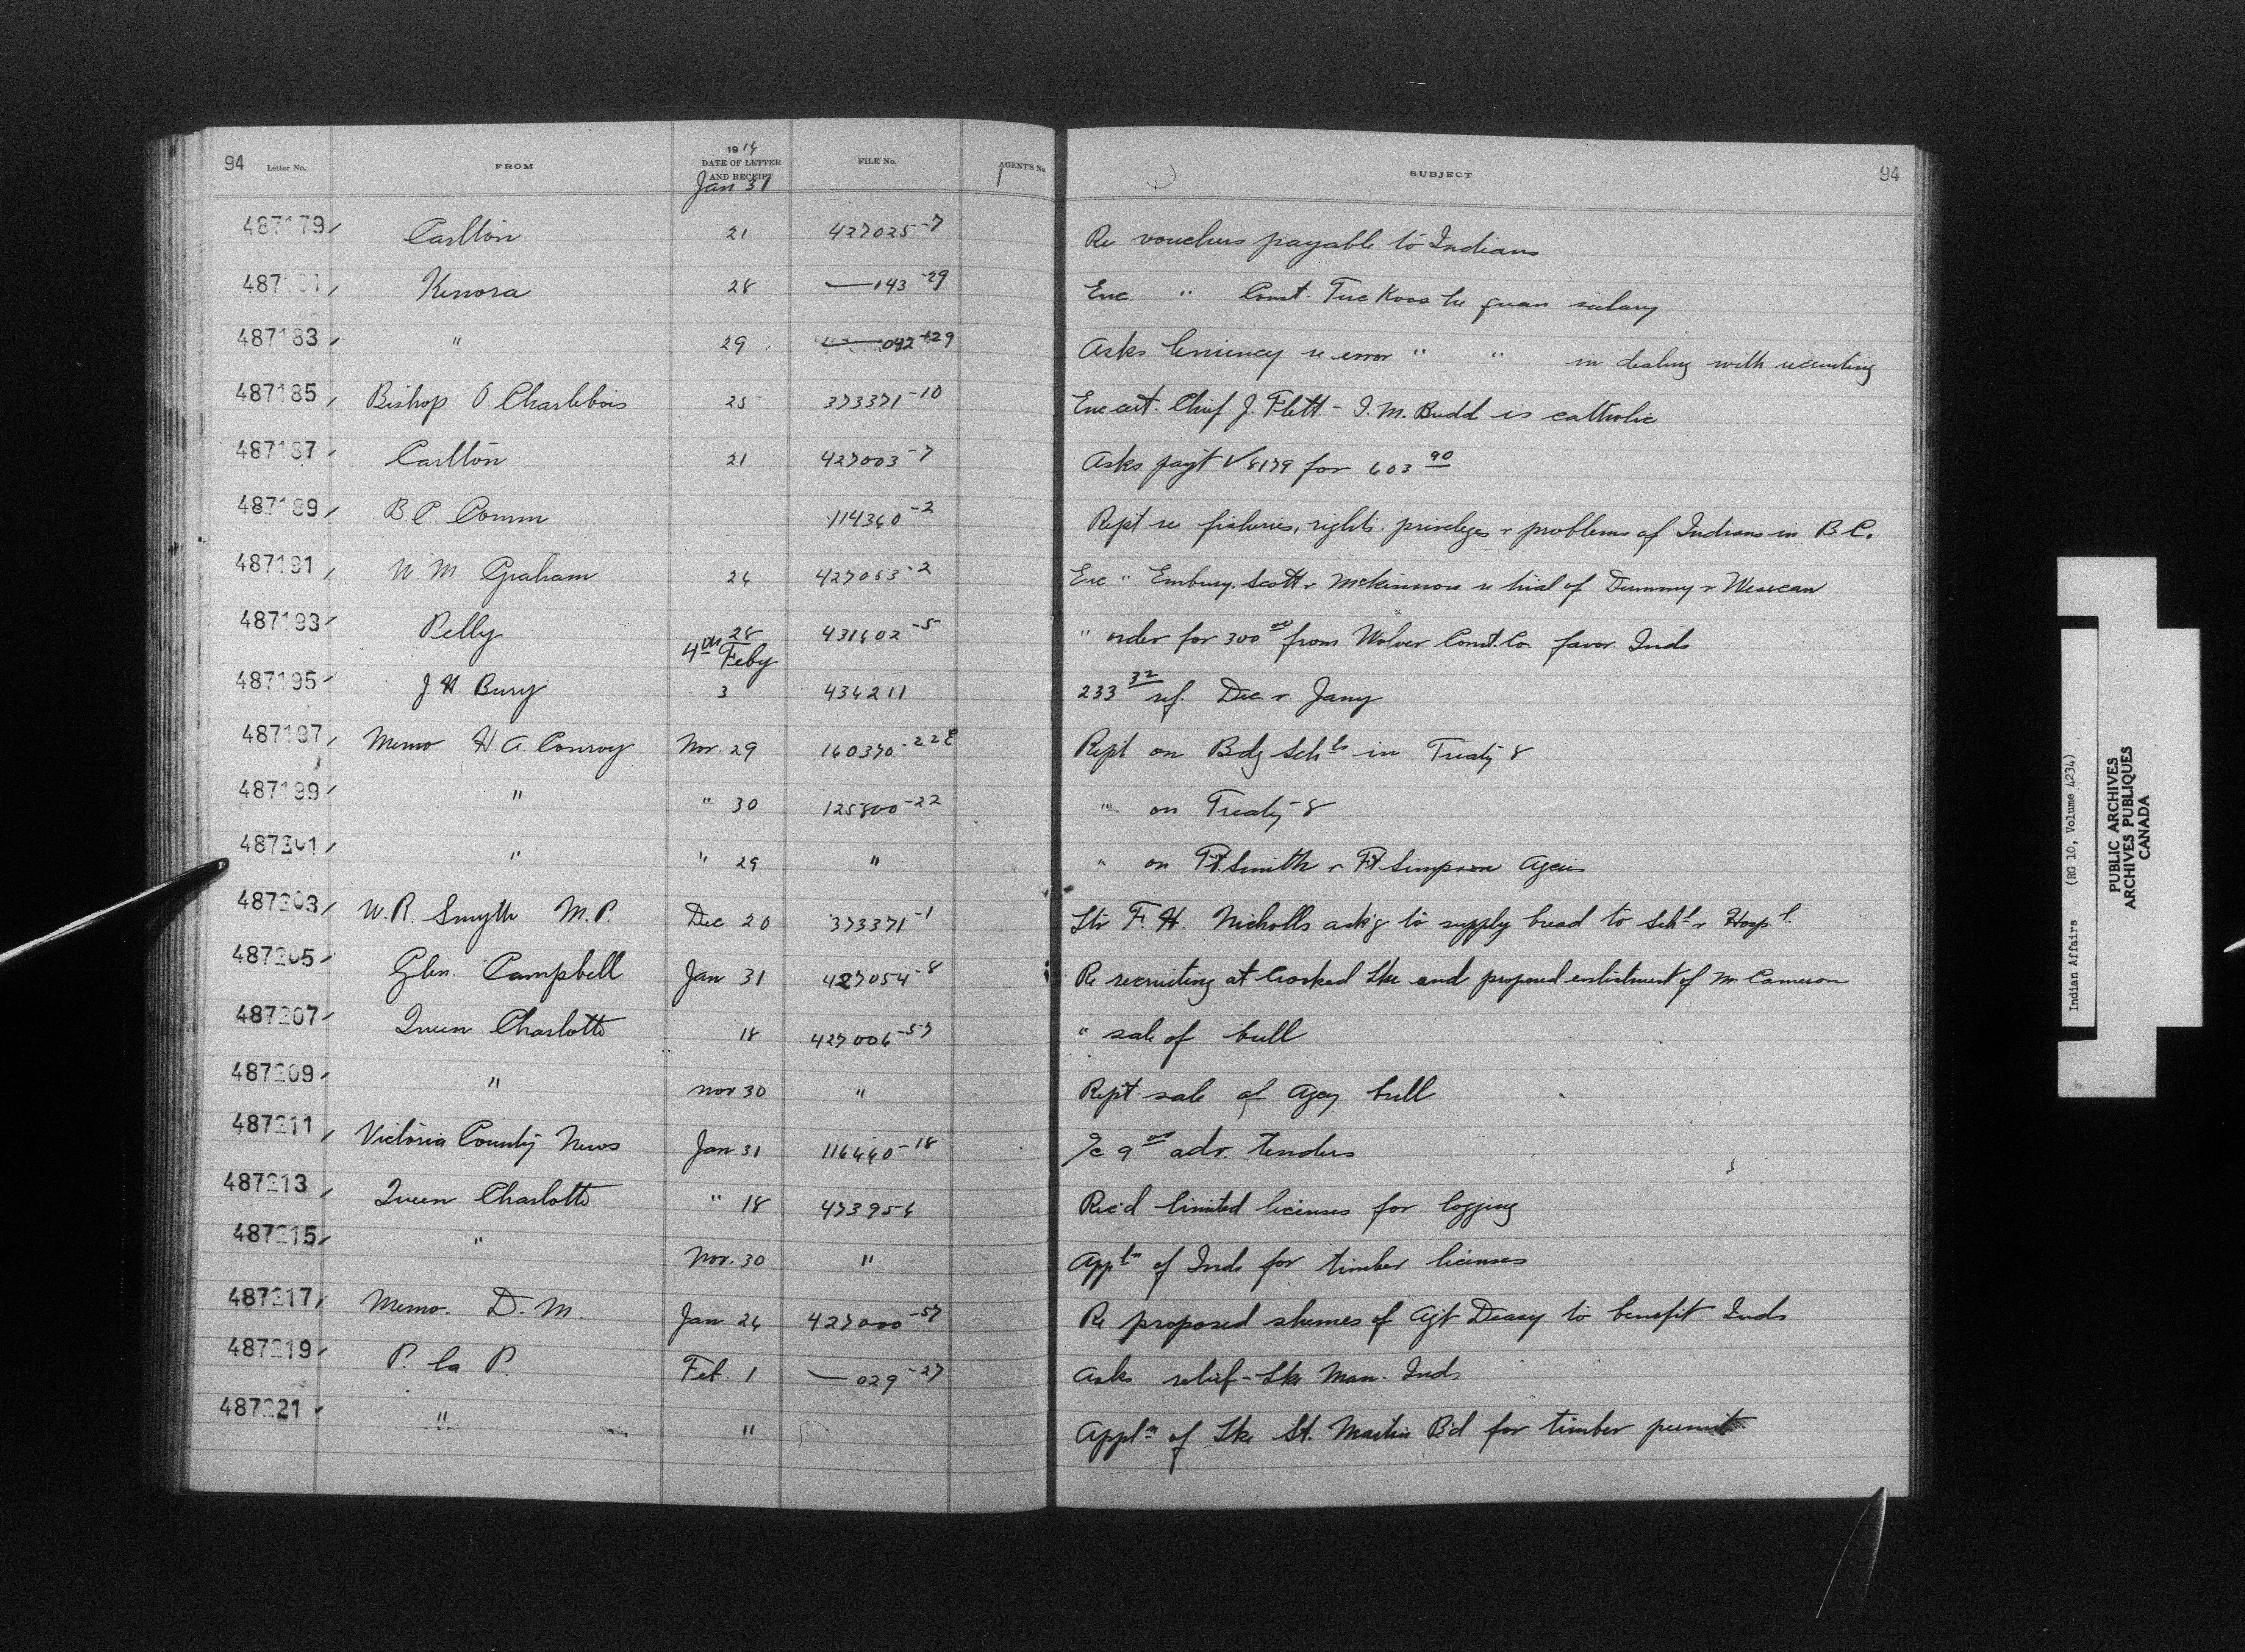 94 Letter No. FROM 1914 DATE OF LETTER AND RECEIPT FILE No. AGENT'S No. SUBJECT 94
Jan 31
487179 Carlton 21 427025-7 Re vouchers payable to Indians
487181 Kenora 28 — 143-29 Enc. " Const. salary
487183 " 29 042-29 Asks leniency re error " " in dealing with recruiting
487185 Bishop O. Charlebois 25 373371-10 Enc cert. Chief J. Flett - J. M. Budd is catholic
487187 Carlton 21 427003-7 Asks pay't V 8179 for 603 90
487189 B.C. Comm 114360-2 Rep't re fisheries, rights, privileges & problems of Indians in B.C.
487191 W. M. Graham 26 427063-2 Enc " Embury, Scott & McKinnon re trial of Dummy &
487193 Pelly 28 431602-5 " order for 300 00 from Wolver Const. Co. favor Inds
4th Feby
487195 J. H. Bury 3 434211 233 32 ref. Dec. & Jany
487197 Memo H. A. Conroy Nov. 29 160370-22 Rep't on Bdg Schls in Treaty 8
487199 " " 30 125800-22 " on Treaty 8
487201 " " 29 " " on Ft. Smith & Ft Simpson Agcies
487203 W. R. Smyth M.P. Dec 20 373371-1 Ltr F. H. Nicholls ask'g to supply bread to Schl & Hospl
487205 Glen. Campbell Jan 31 427054-8 Re recruiting at Crooked Lke and proposed enlistment of Mr Cameron
487207 Queen Charlotte 18 427006-57 " sale of bull
487209 " Nov 30 " Rep't sale of Agcy bull
487211 Victoria County News Jan 31 116440-18 a/c 9 00 adv. tenders
487213 Queen Charlotte " 18 473956 Rec'd limited licenses for logging
487215 " Nov. 30 " Appln of Inds for timber licenses
487217 Memo. D. M. Jan 26 427000-57 Re proposed shemes of Agt Deasy to benefit Inds
487219 P. la P. Feb. 1 — 029-27 Asks relief - Lke Man. Inds
487221 " " Appln of Lke St. Martin B'd for timber permit
Indian Affairs (RG 10, Volume 4234)
PUBLIC ARCHIVES
ARCHIVES PUBLIQUES
CANADA